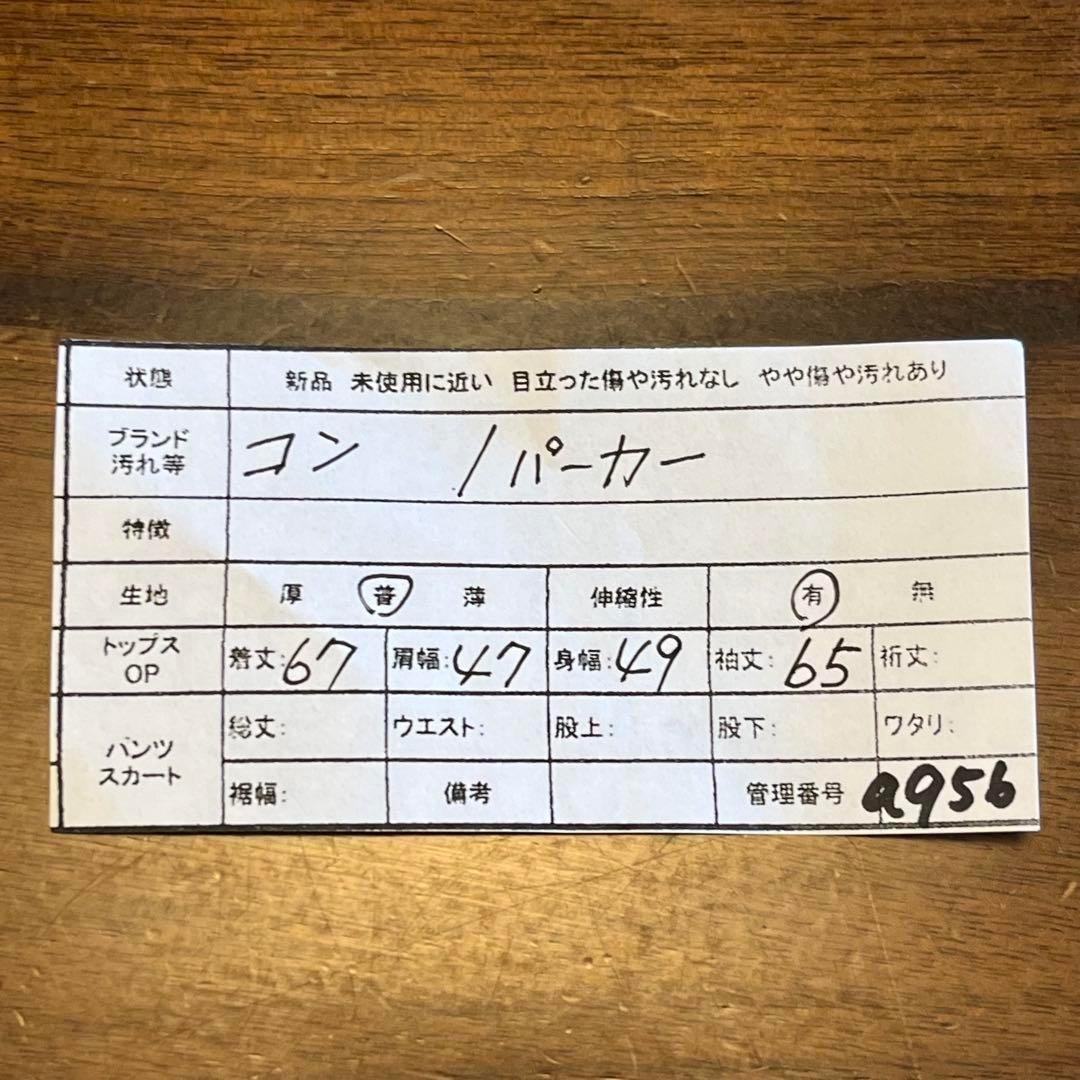 状態 新品 未使用に近い 目立った傷や汚れなし やや傷や汚れあり
ブランド
汚れ等 コン /パーカー
特徴
生地 厚 普 薄 伸縮性 有 無
トップス
OP 着丈:67 肩幅:47 身幅:49 袖丈:65 裄丈:
総丈: ウエスト: 股上: 股下: ワタリ:
パンツ
スカート
裾幅: 備考 管理番号 a956